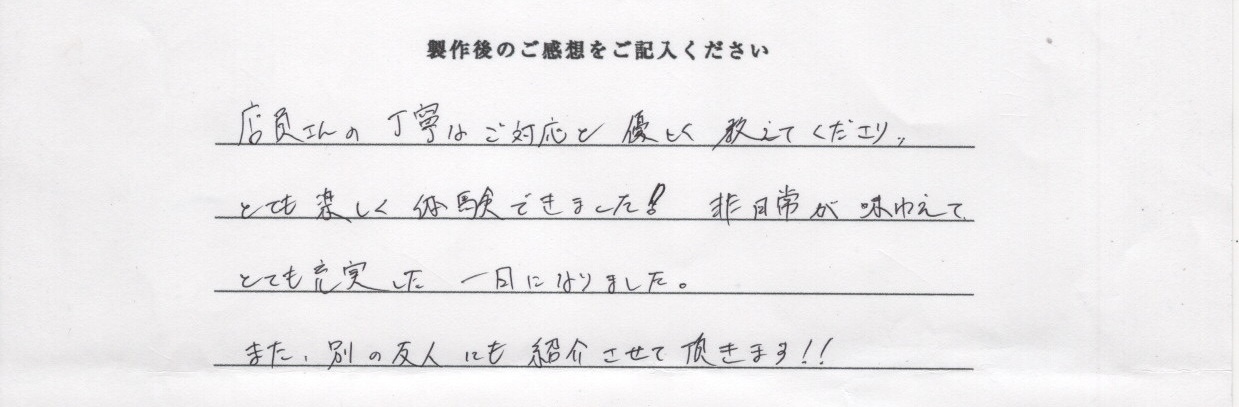 製作後のご感想をご記入ください
店員さんの丁寧なご対応と優しく教えてくださり、
とても楽しく体験できました! 非日常が味わえて
とても充実した一日になりました。
また、別の友人にも紹介させて頂きます!!